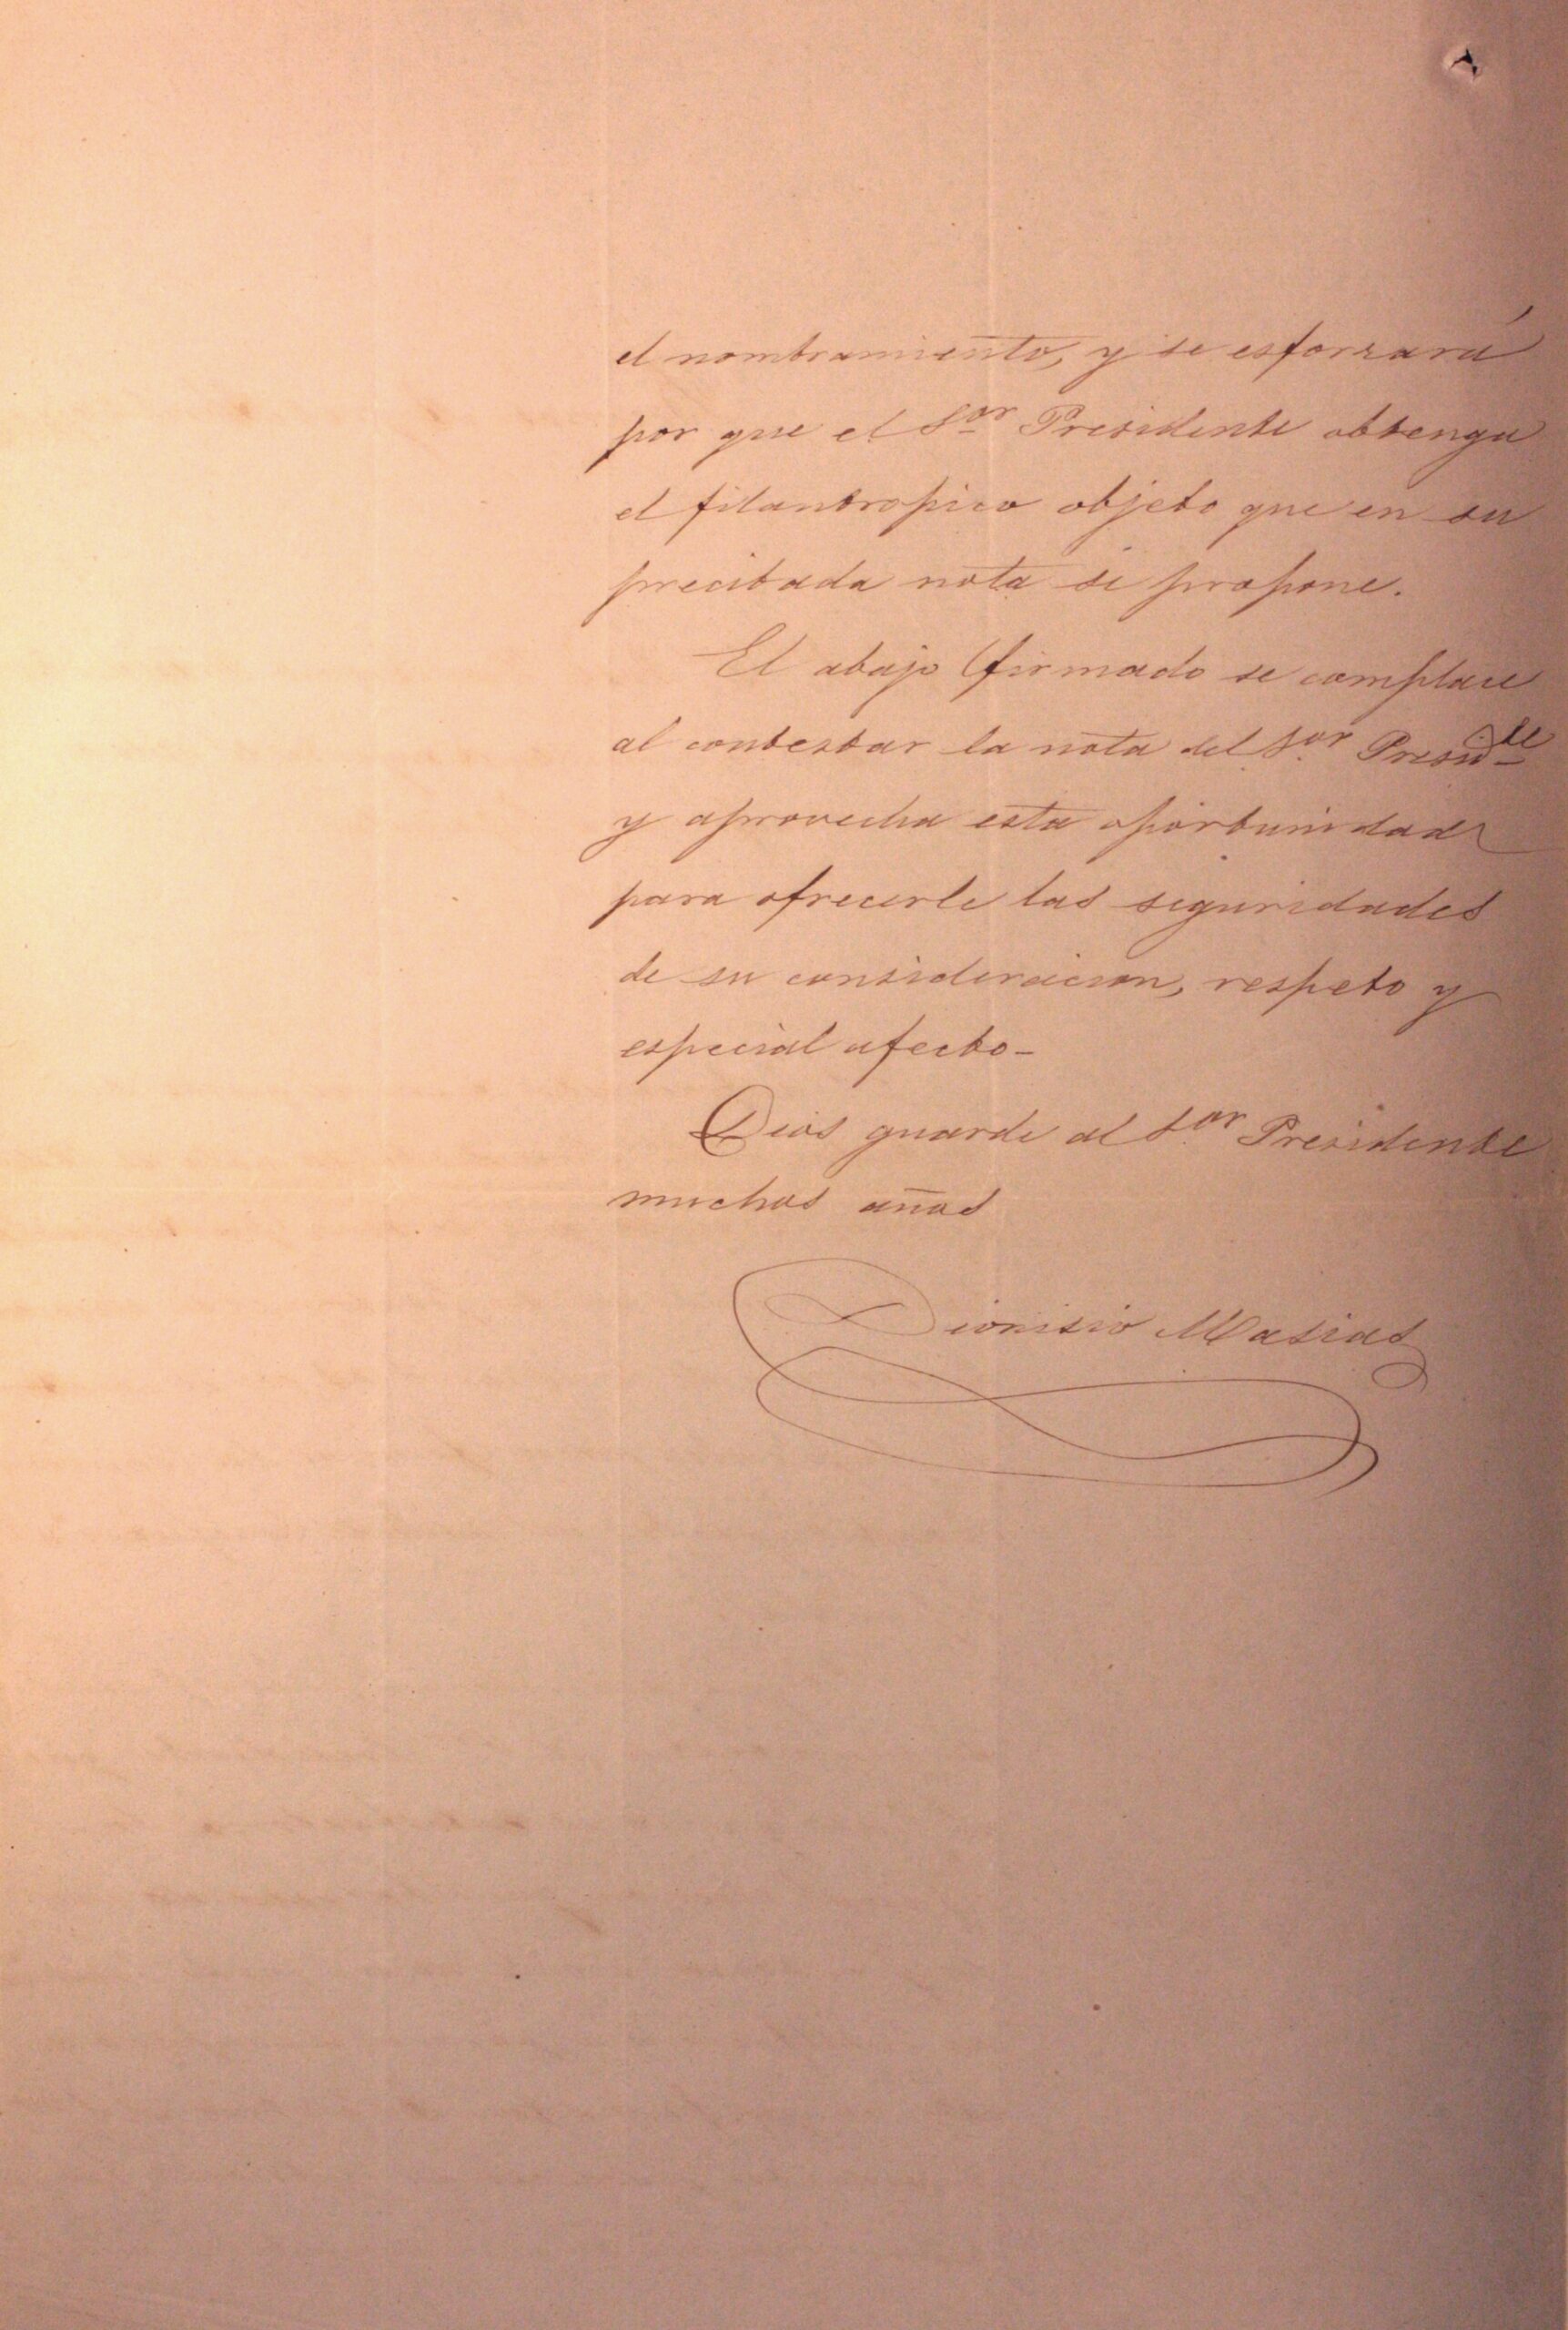 el nombramiento, y se esforzará
por que el Sor Presidente obtenga
el filantropico objeto que en su
precitada nota se propone.
El abajo firmado se complace
al contestar la nota del Sor Presidte
y aprovecha esta oportunidad
para ofrecerle las seguridades
de su consideracion, respeto y
especial afecto-
Dios guarde al Sor Presidente
muchos años
Dionisio Masias